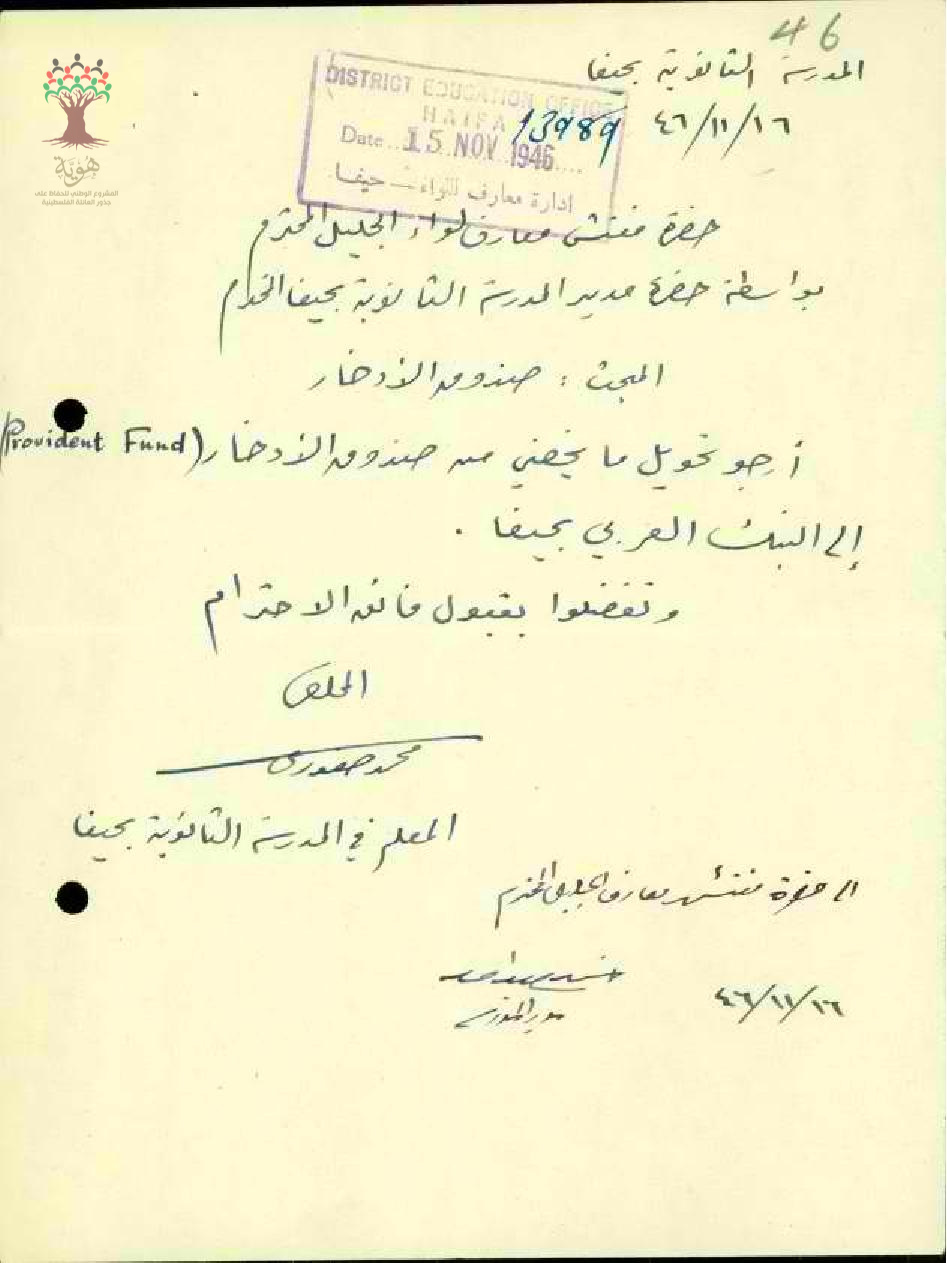 46
المدرسة الثانوية بحيفا
٤٦/١١/١٦
DISTRICT EDUCATION OFFICE
HAIFA
13989
Date 15 NOV 1946
ادارة معارف اللواء - حيفا
هوية
المشروع الوطني للحفاظ على
جذور العائلة الفلسطينية
حضرة مفتش معارف لواء الجليل المحترم
بواسطة حضرة مدير المدرسة الثانوية بحيفا المحترم
المبحث : صندوق الأدخار
أرجو تحويل ما يخصني من صندوق الأدخار (Provident Fund)
إلى البنك العربي بحيفا .
وتفضلوا بقبول فائق الاحترام
المخلص
محمد صفوري
المعلم في المدرسة الثانوية بحيفا
الى حضرة مفتش معارف الجليل المحترم
مدير المدرسة
٤٦/١١/١٦